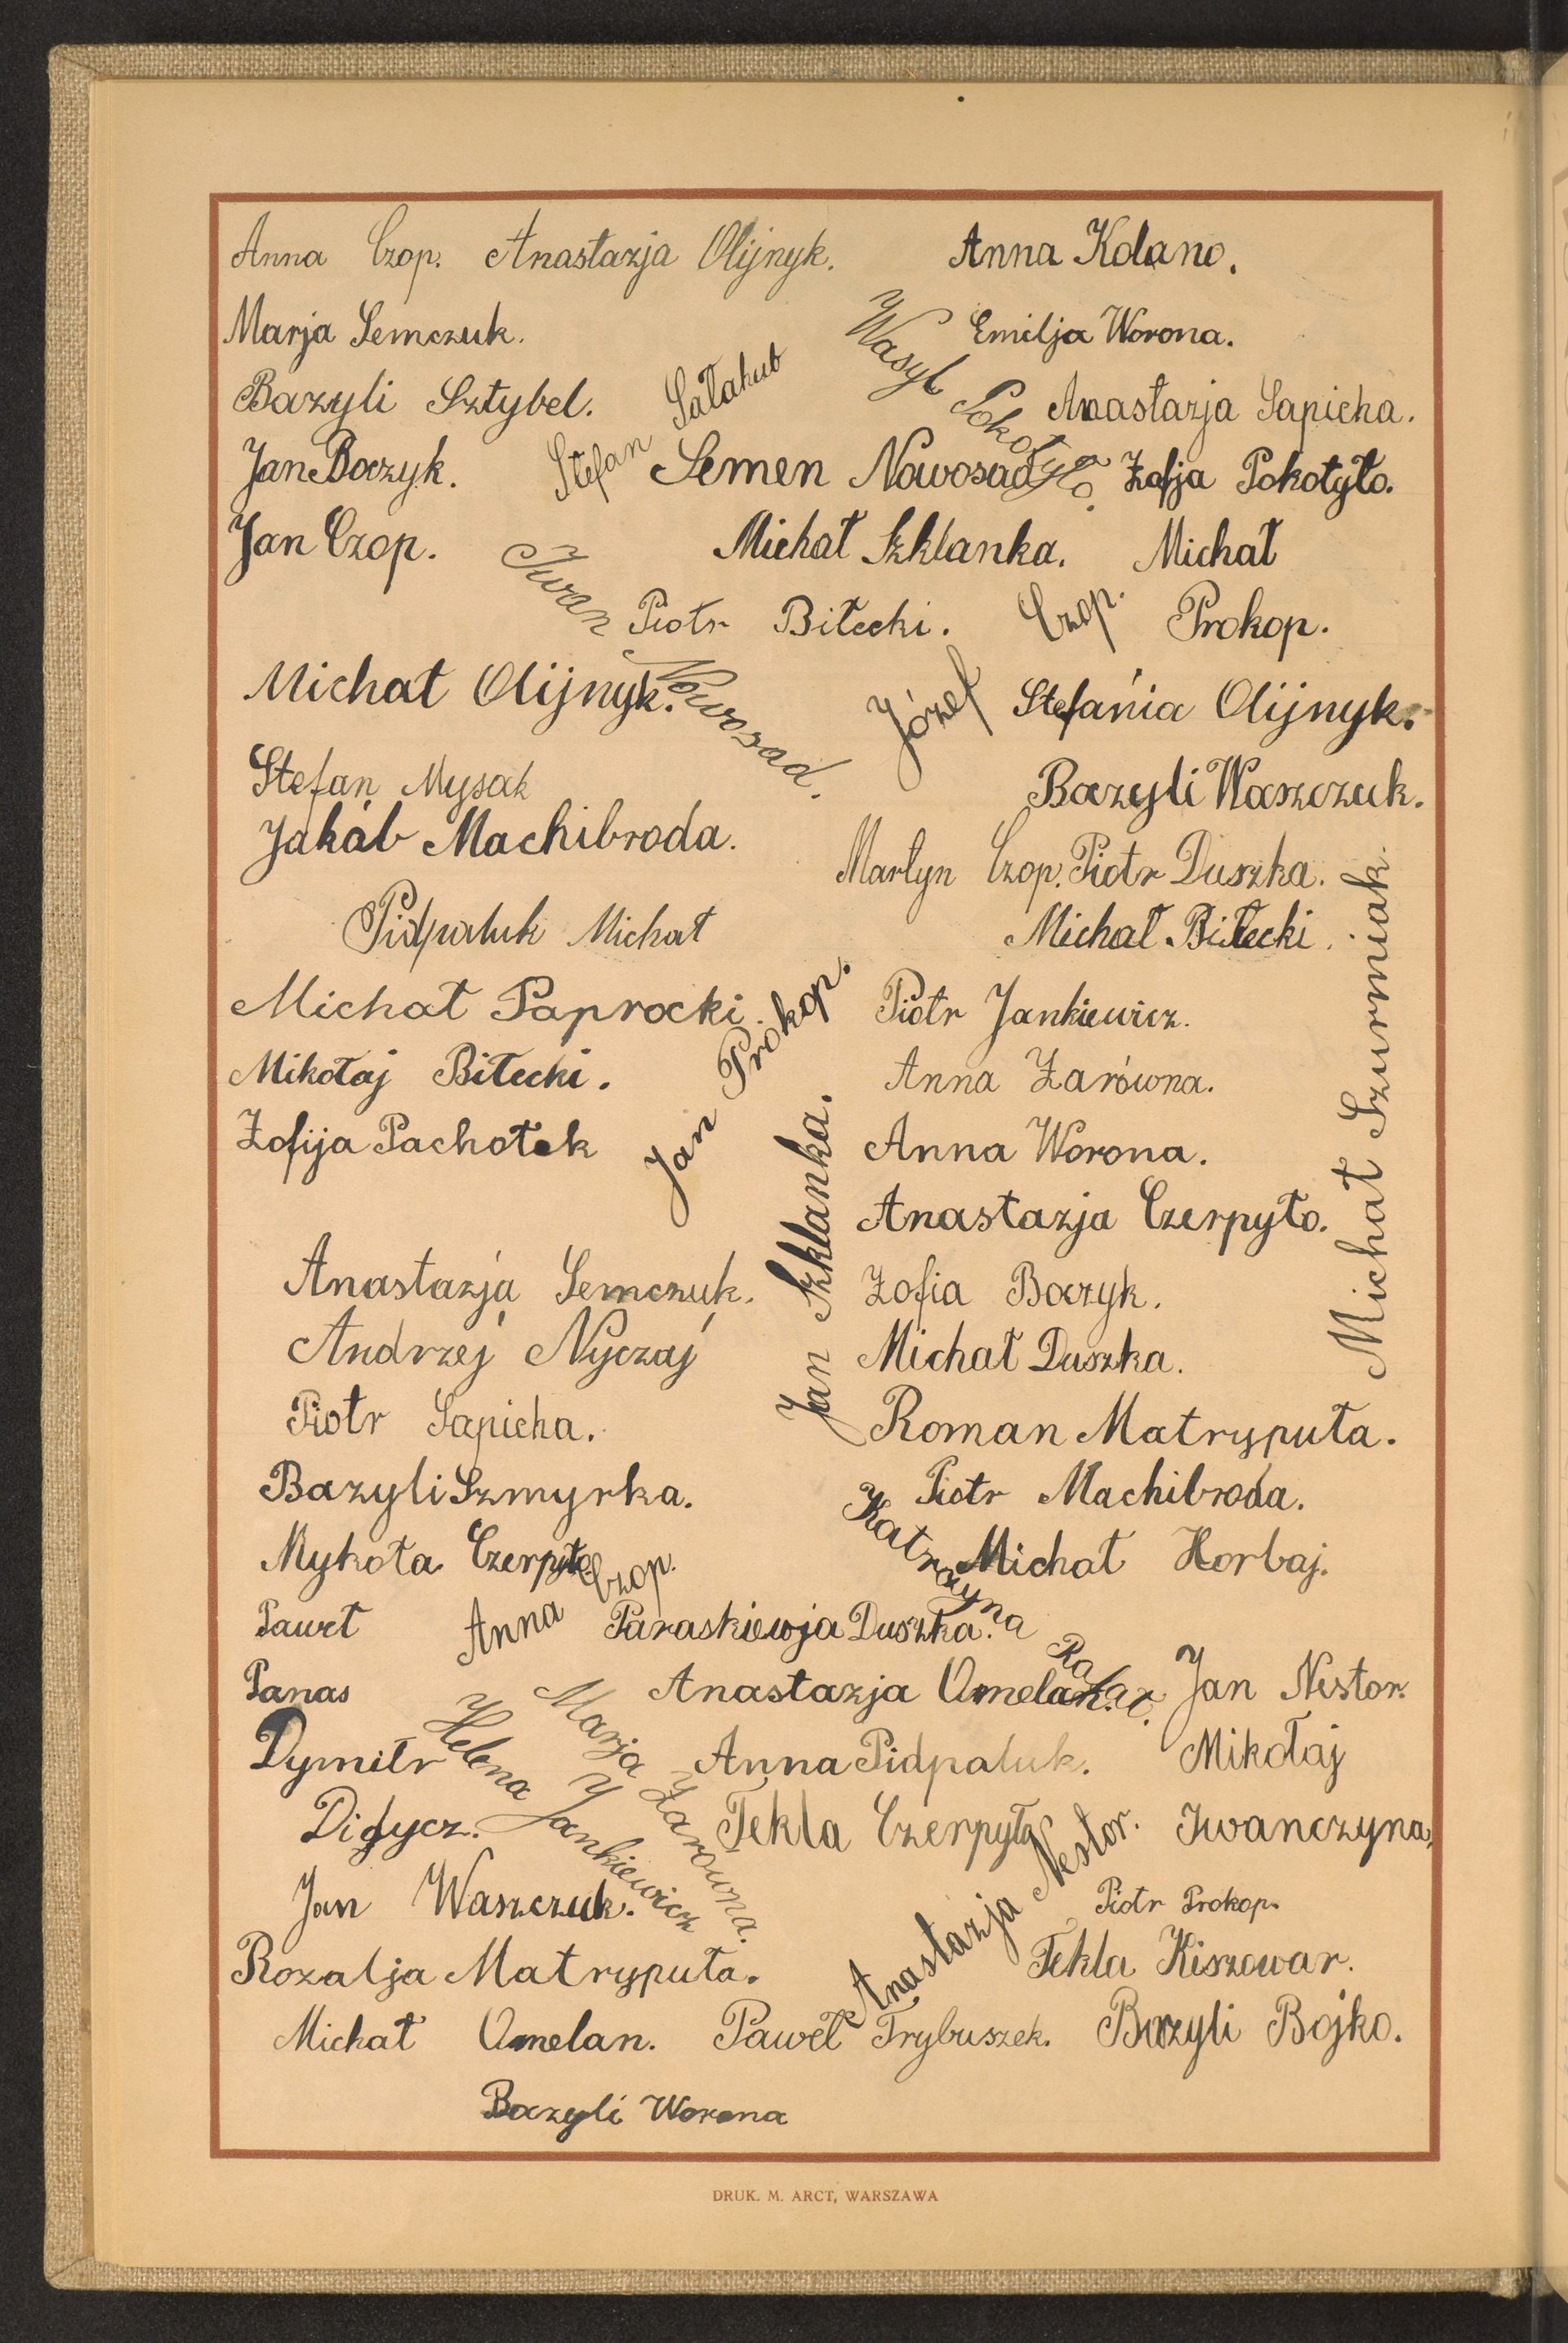 Anna Czop. Anastazja Olijnyk. Anna Kolano.
Marja Semczuk. Emilja Worona.
Wasyl Pokotyło.
Bazyli Sztybel. Stefan Sałahub Anastazja Sapicha.
Jan Baczyk. Semen Nowosad Zofja Pokotyło.
Jan Czop. Michał Szklanka. Michał
Prokop.
Iwan Nowosad.
Piotr Biłecki. Józef Czop.
Michał Olijnyk. Stefania Olijnyk.
Stefan Mysak Bazyli Waszczuk.
Jakób Machibroda.
Martyn Czop. Piotr Duszka.
Pidpaluk Michał Michał Biłecki.
Michał Szurmiak.
Michał Paprocki. Piotr Jankiewicz.
Jan Prokop.
Mikołaj Biłecki. Anna Żarówna.
Zofija Pachołek Anna Worona.
Jan Szklanka.
Anastazja Czerpyło.
Anastazja Semczuk. Zofia Baczyk.
Andrzej Nyczaj Michał Duszka.
Piotr Sapicha. Roman Matryputa.
Bazyli Szmyrka. Piotr Machibroda.
Katrzyna
Mykoła Czerpyło Michał Horbaj.
Anna Czop.
Paweł Paraskiewja Duszka.
Panas Anastazja Omelan. Jan Nestor.
Marja Żarówna.
Helena Jankiewicz
Dymitr Anna Pidpaluk. Mikołaj
Didycz. Tekla Czerpyło Iwanczyna,
Anastazja Nestor.
Jan Waszczuk. Piotr Prokop.
Rozalja Matryputa. Tekla Kiszowar.
Michał Omelan. Paweł Trybuszek. Bazyli Bojko.
Bazyli Worona
DRUK. M. ARCT, WARSZAWA